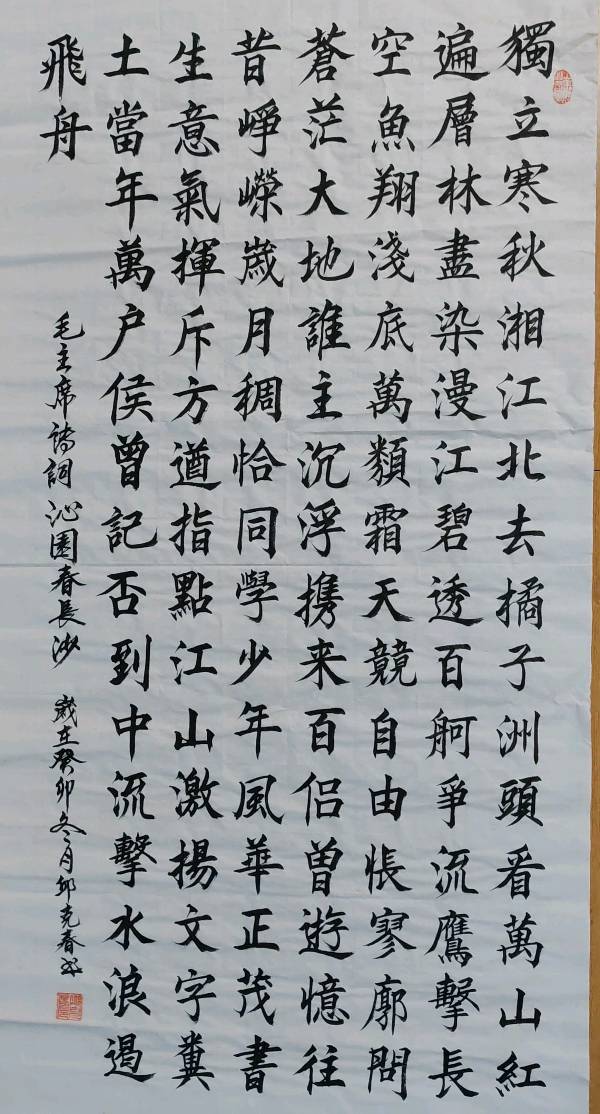 獨立寒秋湘江北去橘子洲頭看萬山紅
遍層林盡染漫江碧透百舸爭流鷹擊長
空魚翔淺底萬類霜天競自由悵寥廓問
蒼茫大地誰主沉浮携来百侣曾遊憶往
昔崢嶸歲月稠恰同學少年風華正茂書
生意氣揮斥方遒指點江山激揚文字糞
土當年萬户侯曾記否到中流擊水浪遏
飛舟
毛主席詩詞沁園春長沙 歲在癸卯冬月邱克春书